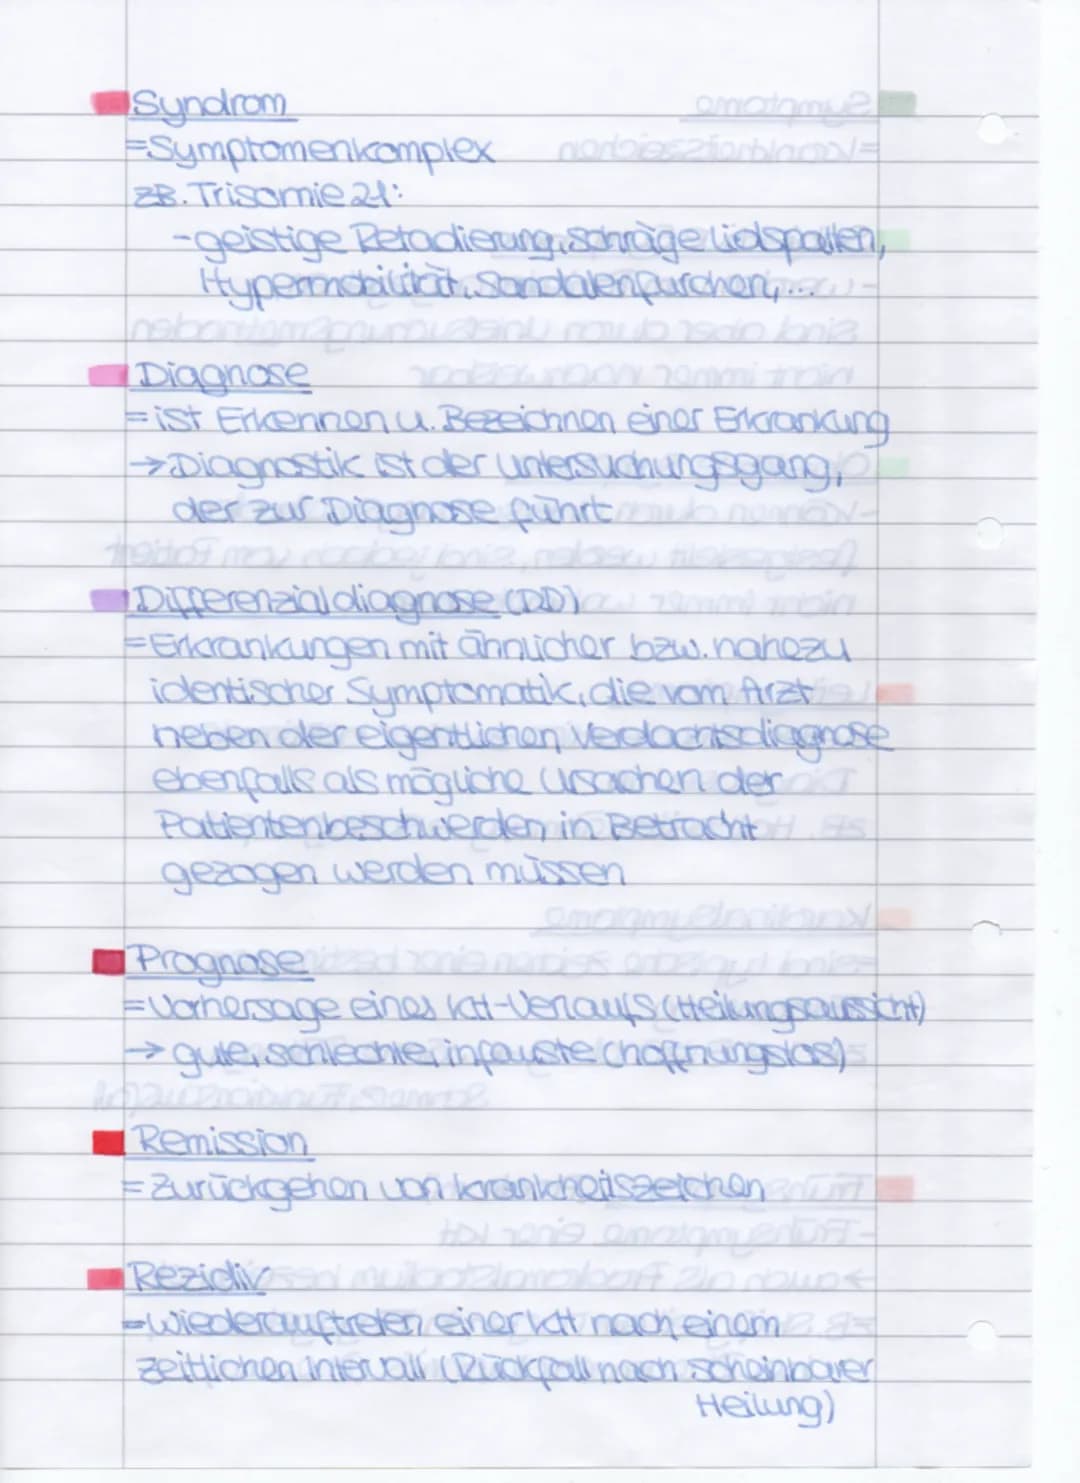 Syndrom
=Symptomenkomplex
zB. Trisomie 21:
-geistige Retadierung, schräge Lidspalten,
Hypermobilität, Sandalenfurchen, ...
Diagnose
= ist Erkennen u. Bezeichnen einer Erkrankung
→ Diagnostik ist der Untersuchungsgang,
der zur Diagnose führt
Differenzialdiagnose (DD)
=Erkrankungen mit ähnlicher bzw. nahezu
identischer Symptomatik, die vom Arzt
neben der eigentlichen Verdachtsdiagnose
ebenfalls als mögliche Ursachen der
Patientenbeschwerden in Betracht
gezogen werden müssen
Prognose
=Vorhersage eines KH-Verlaufs (Heilungsaussicht)
→ gute, schlechte, infauste (hoffnungslos)
Remission
=Zurückgehen von Krankheitszeichen
Rezidiv
=Wiederauftreten einer KH nach einem
zeitlichen Intervall (Rückfall nach scheinbarer
Heilung)